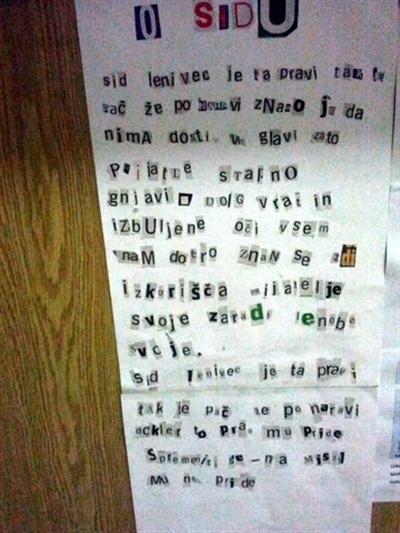 O SIDU
sid lenivec je ta pravi tak je
pač že po naravi znano je da
nima dosti v glavi zato
prijatle stalno
gnjavi DolG vrat in
izbuljene oči vsem
nam dobro znan se zdi
izkorišča prijatelje
svoje zaradi lenobe
svoje.
sid lenivec je ta pravi
tak je pač že po naravi
dokler to prav mu pride
Spremeniti se - na misel
Mu ne pride